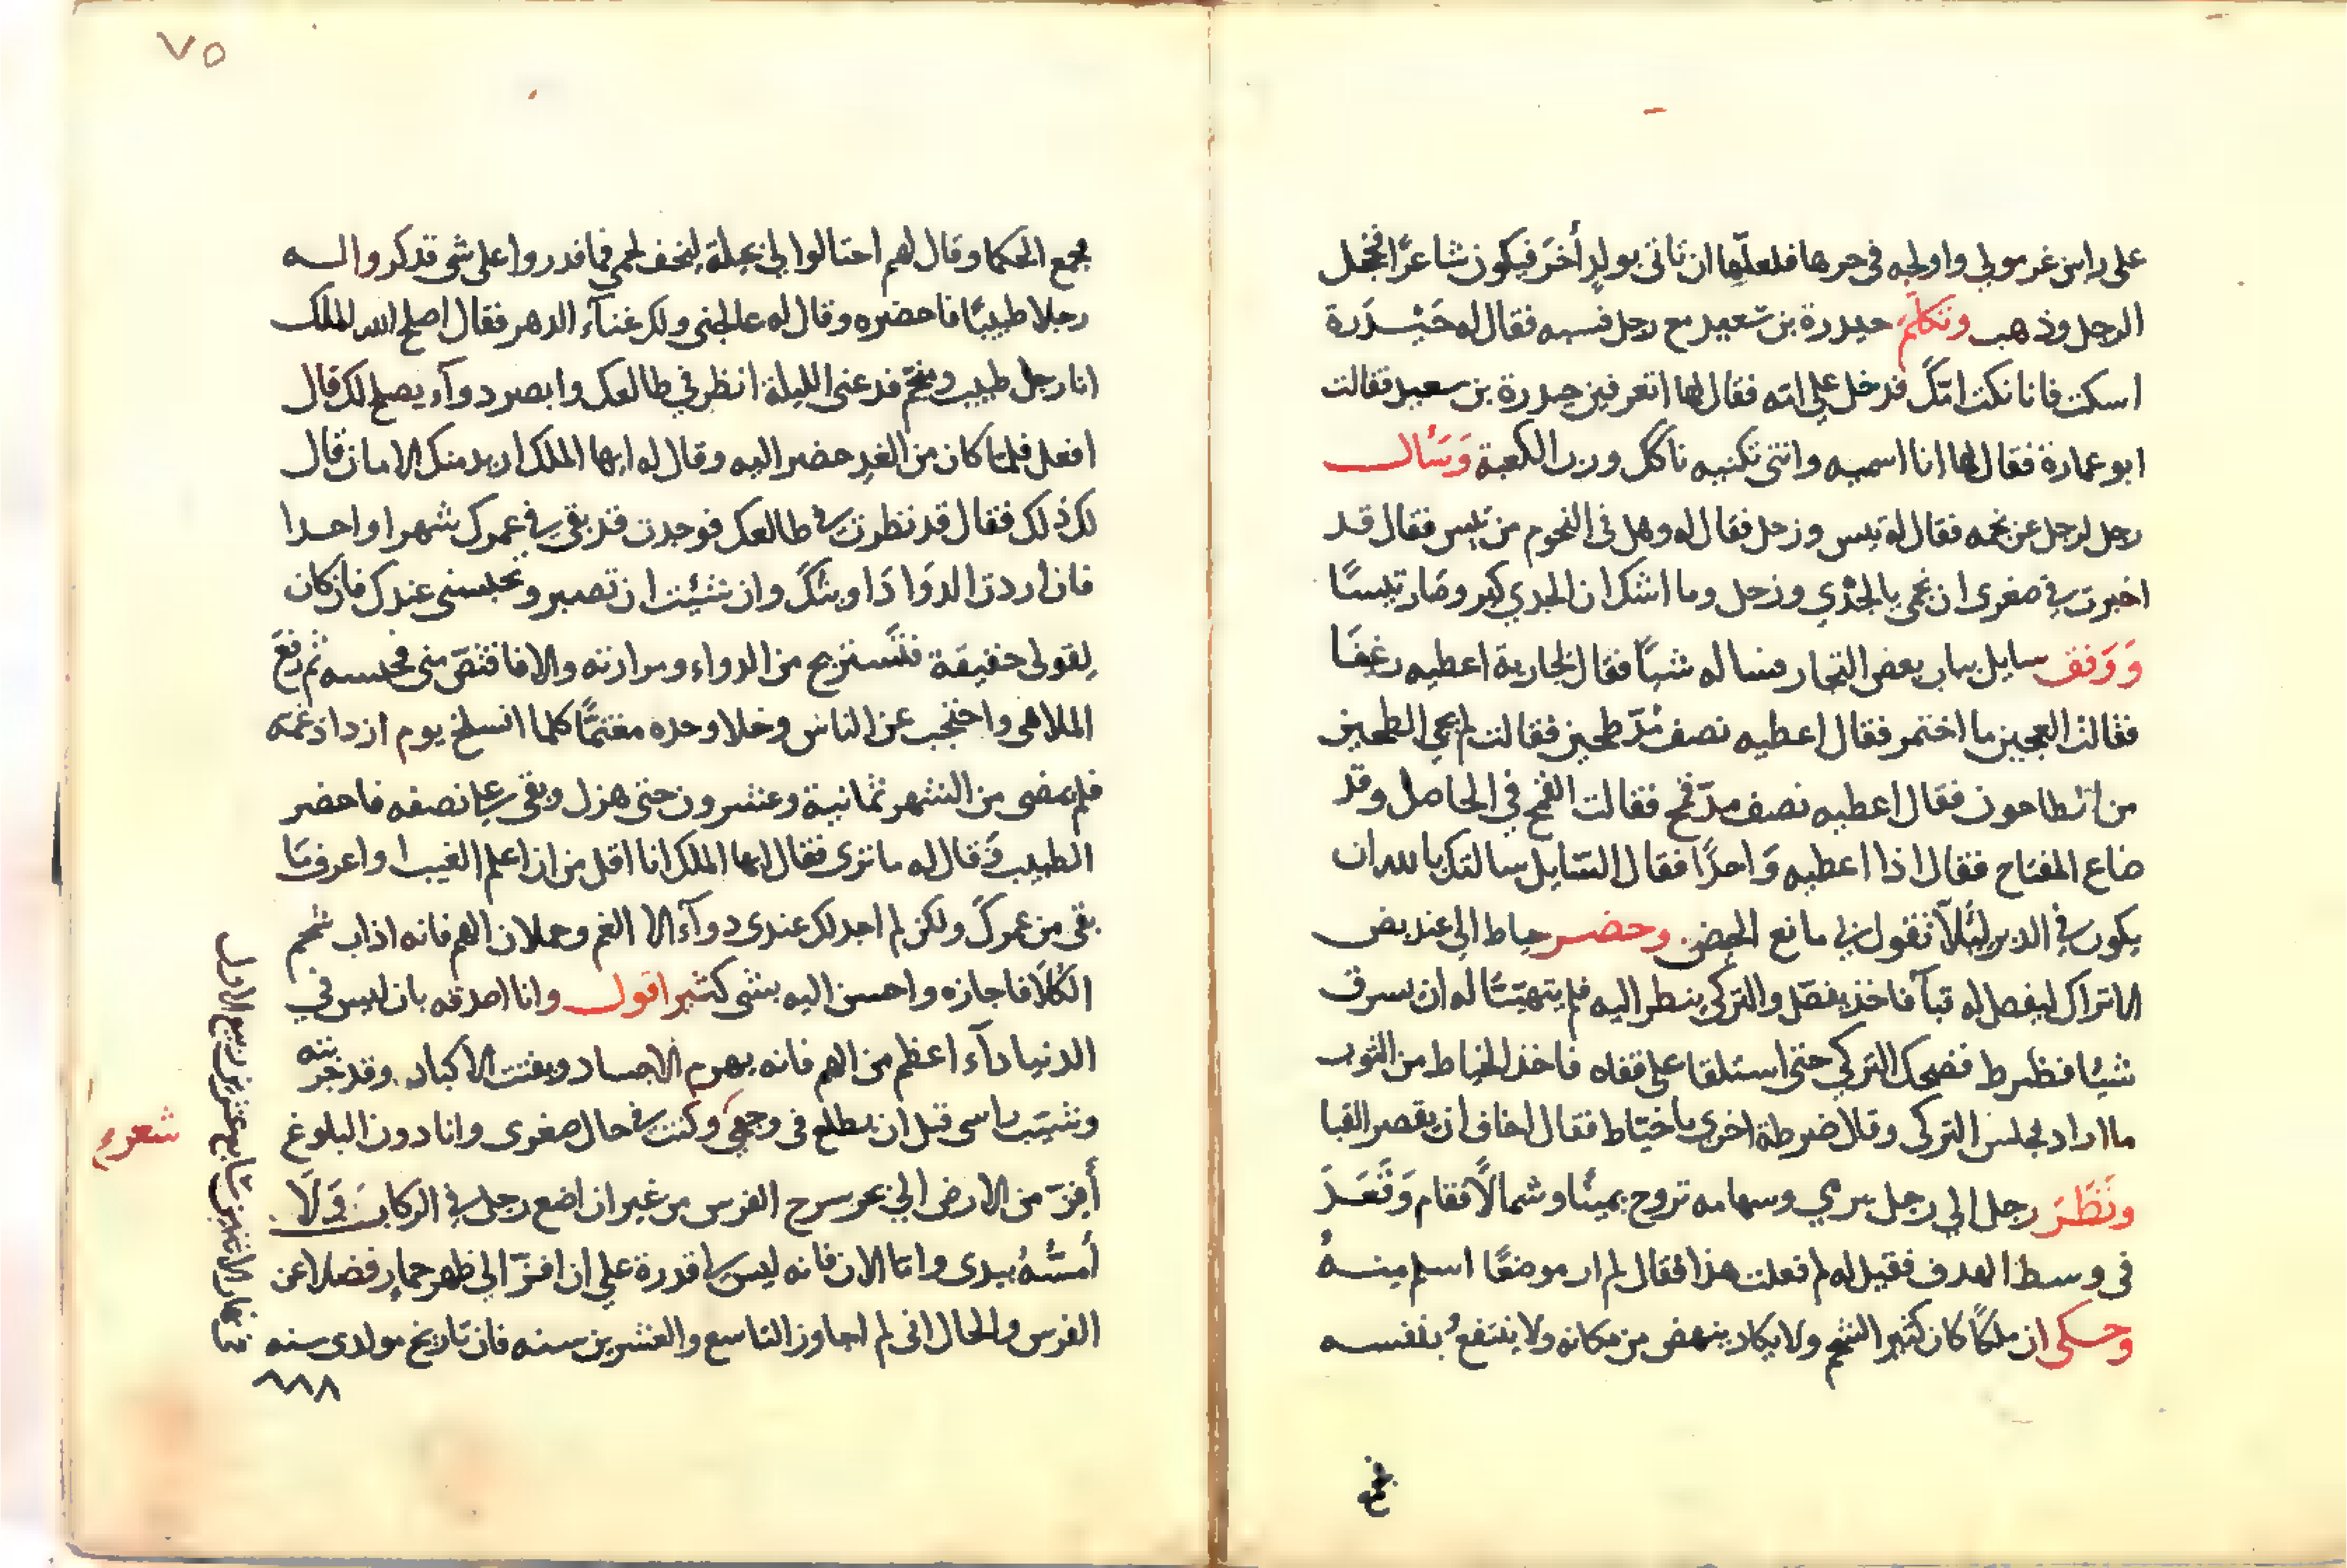 على راس غرمولي واولجه في حرها فلعلّها ان تاتى بولدٍ أخَر فيكون شاعرًا فخجل
الرجل وذهب وتكلّم حيدرة بن سعيد مع رجل فسبه فقال له حَيْدَرة
اسكت فانا نكت امّكَ فدخل على امه فقال لها اتعرفين حيدرة بن سعيد فقالت
ابو عمارة فقال لها انا اسميه وانتي تكنيه ناكك ورب الكعبة وَسَأل
رجل لرجل عن نجمه فقال له تيس وزحل فقال له وهل في النجوم من تيس فقال قد
اخبرت في صغرى ان نجمى بالجَدْي وزحل وما اشك ان الجدي كبر وصَار تيسًا
وَوَقف سايل بباب بعض التجار فساله شيأً فقال لجارية اعطيه رغيفَا
فقالت العجين ما اختمر فقال اعطيه نصف مُدّ طحين فقالت لم يجي الطحين
من الطاحون فقال اعطيه نصف مدّ قمح فقالت القمح في الحاصل وقد
ضاع المفتاح فقال اذا اعطيه وَاحدًا فقال السّايل سالتك بالله ان
يكون في الدبر ليَلّا تقول لي مانع الحيض. وحضر خياط الي عند بعض
الاتراك ليفصل له قبآ فاخذ يفصّل والتركي ينظر اليه فلم يتهيّـَا له ان يسرق
شيئا فظرط فضحك التركي حتى استلقا على قفاه فاخذ الخياط من الثوب
ما اراد فجلس التركى وقال ضرطة اخرى يا خيّاط فقال اخاف ان يقصر القبا
ونَظَرَ رجل الي رجل يرمي وسهامه تروح يمينًا وشمالًا فقام وَقَعَدَ
في وسط الهدف فقيل له لم فعلت هذا فقال لم ار موضعًا اسلم منـهُ
وحكى ان ملكًا كان كثير الشحم ولا يكاد ينهض من مكانه ولا ينتفعُ بنفسه
فجمع
٧٥
فجمع الحكما وقال لهم احتالوا لي بحيلة لِيخف لحمي فما قدروا على شي قد كروا له
رجلا طبيبًا فاحضره وقال له عالجنى ولك غنآء الدهر فقال اصلح الله الملك
انا رجل طبيب ومنجّم فدعنى الليلة انظر في طالعك وابصر دوآء يصلح لك قال
افعل فلمّا كان من الغدِ حضر اليه وقال له ايها الملك اريد منك الامان قال
لك ذلك فقال قد نظرت في طالعك فوجدت قد بقى في عمرك شهرا واحدا
فان اردت الدوَا دَاويتُكَ وان شئيت ان تصبر وتحبسنى عندك فان كان
لِقولى حقيقة فتَستريح من الدواء ومرارته والا فاقتصّ منى فحبسه ثم رفَعَ
الملاهى واحتجب عن الناس وخلا وحده مغتمًّا كلما انسلخ يوم ازداد غمّه
فلم يمضى من الشهر ثمانية وعشرون حتى هزل وبقى على نصفه فاحضر
الطبيب وَقال له ما ترى فقال ايها الملك انا اقل من ان اعلم الغيب او اعرف مَا
بقى من عمركَ ولكن لم اجد لك عندى دوآء الا الغم وحملان الهم فانه اذاب شحم
الكلَا فاجازه واحسن اليه بشى كثير اقول وانا اصدقه بان ليس في
الدنيا دآء اعظم من الهم فانه يهرم الاجساد ويفتت الاكباد. وقد جرّبته
وشيّب راسى قبل ان يطلع في وجهي وكنت في حال صغرى وانا دون البلوغ
أَفِزّ من الارض الي نحو سرج الفرس من غير ان اضع رجلى في الركاب وَلَا
أَمسّهُ بيدى وامّا الان فانه ليس لي قدرة على ان افزّ الي ظهر حمار فضلا عن
الفرس والحال انى لم اجاوز التاسع والعشرين سنه فان تاريخ مولدى سنه
شعر